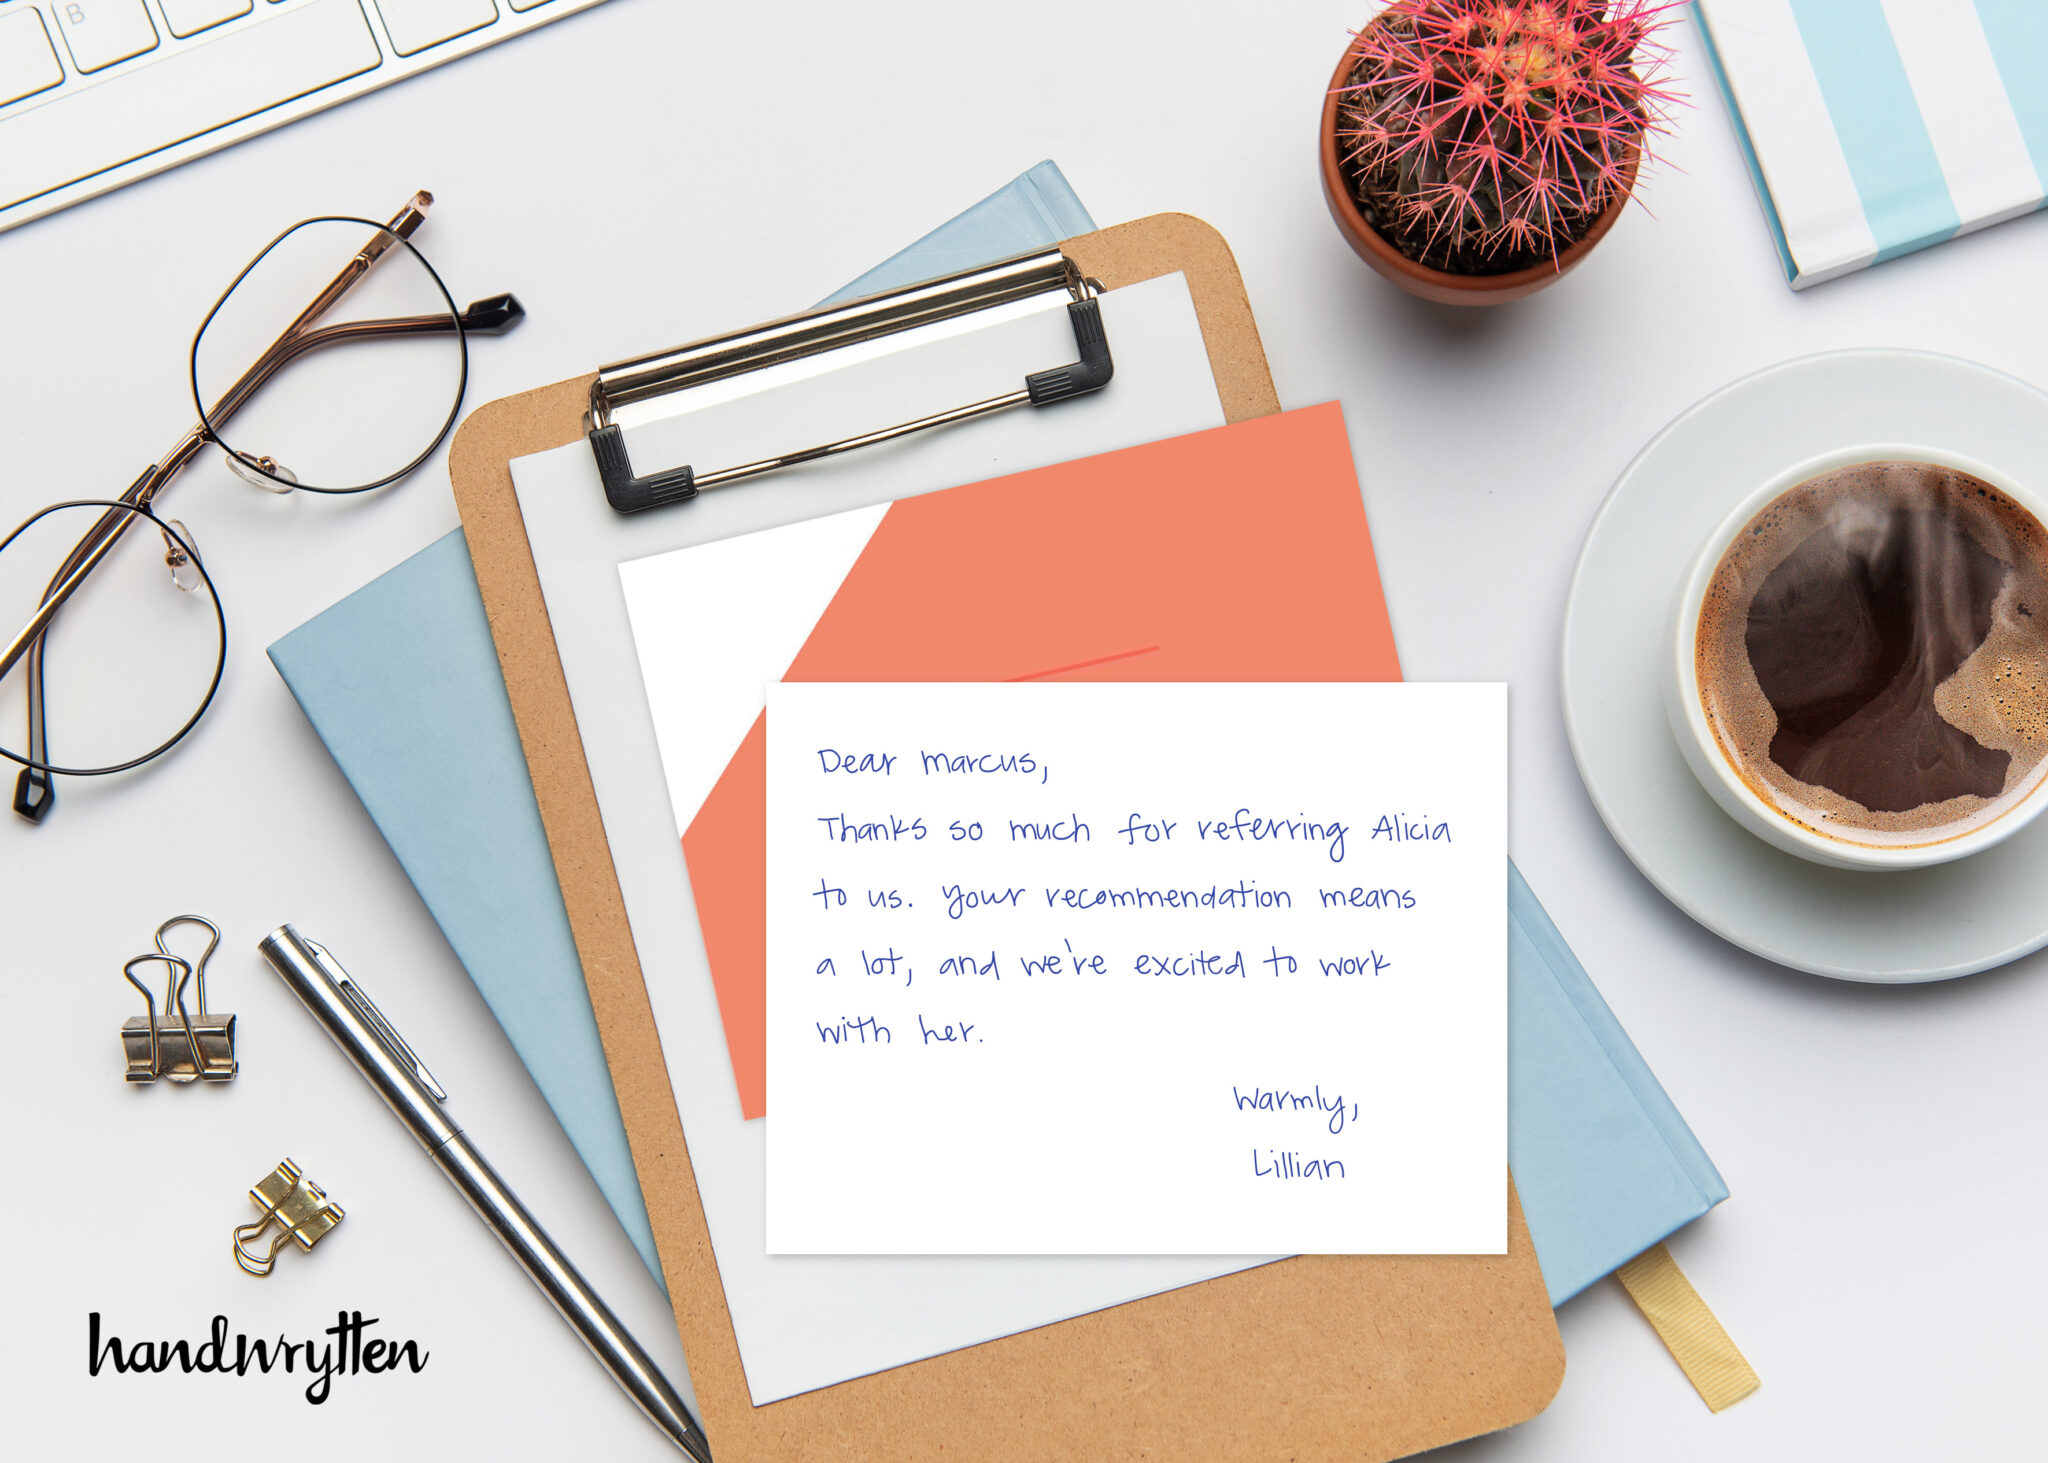 B
Dear Marcus,
Thanks so much for referring Alicia
to us. Your recommendation means
a lot, and we're excited to work
with her.
Warmly,
Lillian
handwrytten